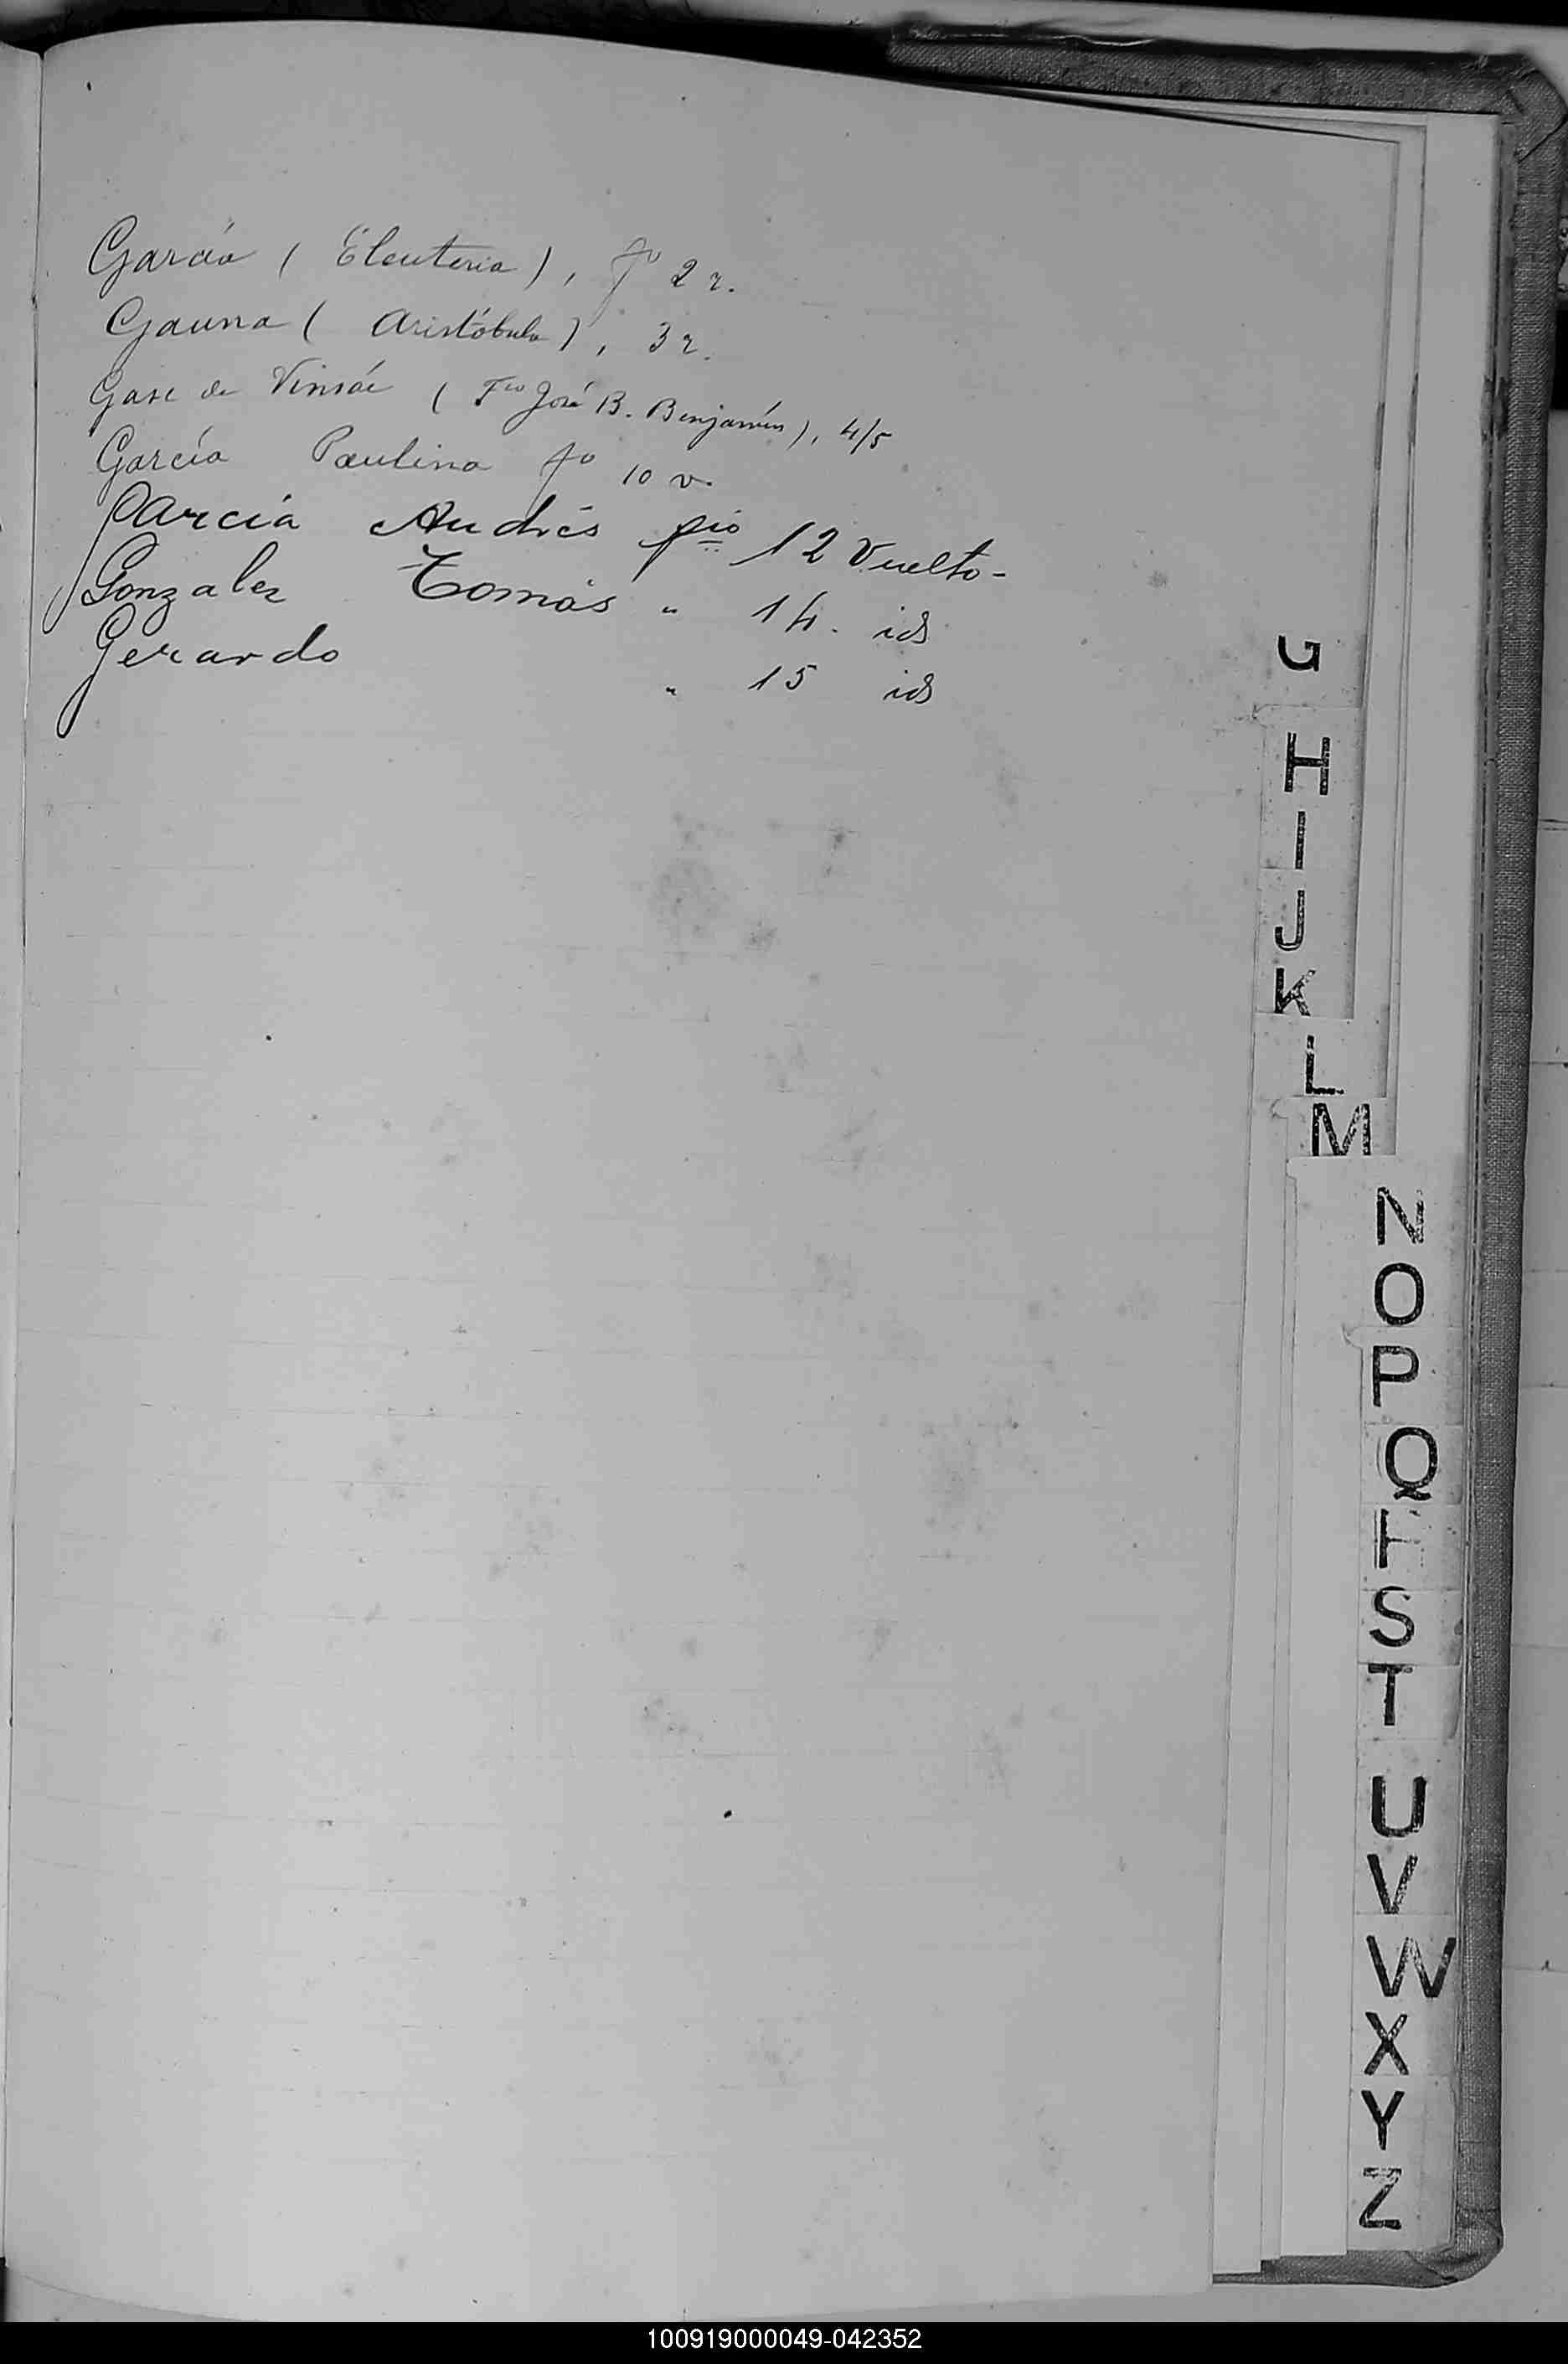 García (Eleuteria), fº 2 r.
Gauna (Aristóbulo), 3 r.
Gase de Vinsác (Fco José B. Benjamín), 4/5
García Paulina fº 10 v.
García Andrés fio 12 Vuelto-
Gonzalez Tomás " 14. id
Gerardo " 15 id
G
H
I
J
K
L
M
N
O
P
Q
S
T
U
V
W
X
Y
Z
100919000049-042352